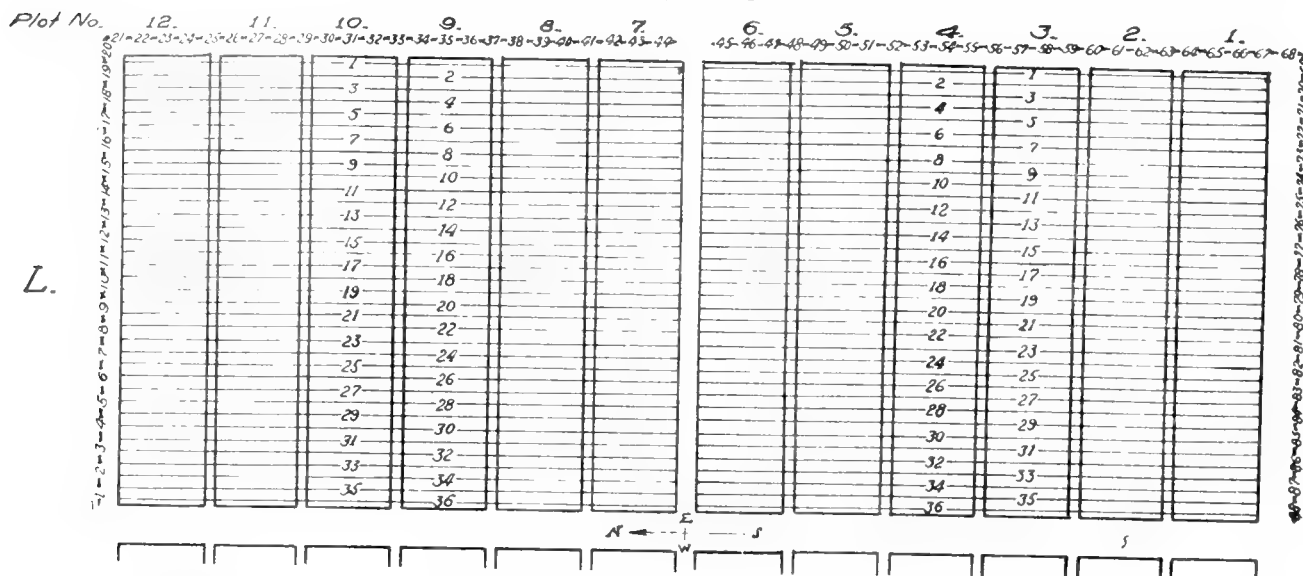 Plot No. 12. 11. 10. 9. 8. 7. 6. 5. 4. 3. 2. 1.
21-22-23-24-25-26-27-28-29-30-31-32-33-34-35-36-37-38-39-40-41-42-43-44
45-46-47-48-49-50-51-52-53-54-55-56-57-58-59-60-61-62-63-64-65-66-67-68
1-2-3-4-5-6-7-8-9-10-11-12-13-14-15-16-17-18-19-20
L.
1
3
5
7
9
11
13
15
17
19
21
23
25
27
29
31
33
35
2
4
6
8
10
12
14
16
18
20
22
24
26
28
30
32
34
36
2
4
6
8
10
12
14
16
18
20
22
24
26
28
30
32
34
36
1
3
5
7
9
11
13
15
17
19
21
23
25
27
29
31
33
35
E
N S
W